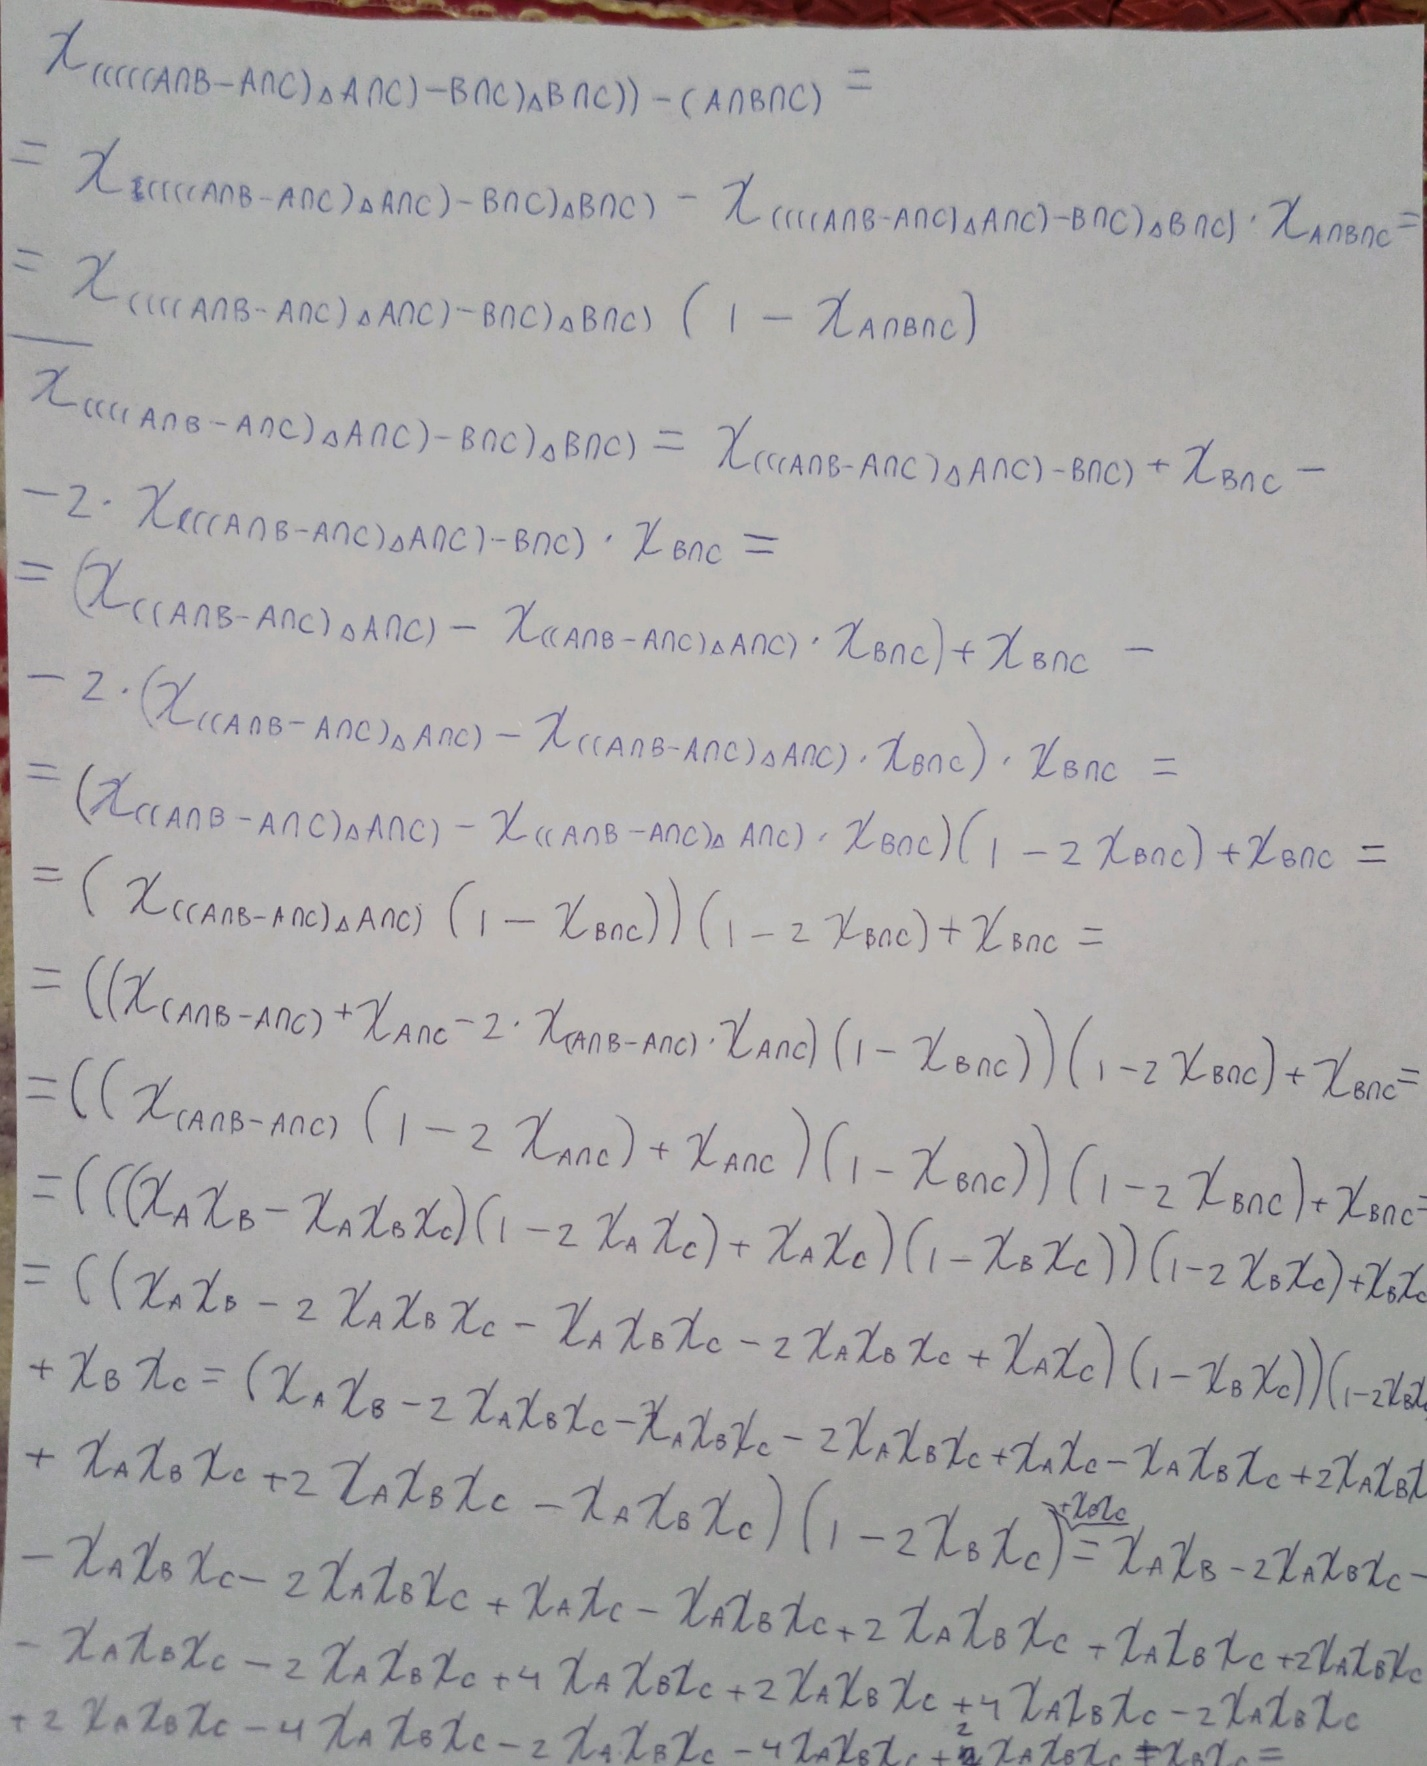 χ(((((A∩B−A∩C)△A∩C)−B∩C)△B∩C))−(A∩B∩C) =
= χ(((((A∩B−A∩C)△A∩C)−B∩C)△B∩C) − χ((((A∩B−A∩C)△A∩C)−B∩C)△B∩C) · χA∩B∩C =
= χ((((A∩B−A∩C)△A∩C)−B∩C)△B∩C) (1 − χA∩B∩C)
χ((((A∩B−A∩C)△A∩C)−B∩C)△B∩C) = χ(((A∩B−A∩C)△A∩C)−B∩C) + χB∩C −
−2· χ(((A∩B−A∩C)△A∩C)−B∩C) · χB∩C =
= (χ((A∩B−A∩C)△A∩C) − χ((A∩B−A∩C)△A∩C) · χB∩C) + χB∩C −
−2·(χ((A∩B−A∩C)△A∩C) − χ((A∩B−A∩C)△A∩C) · χB∩C) · χB∩C =
= (χ((A∩B−A∩C)△A∩C) − χ((A∩B−A∩C)△A∩C) · χB∩C)(1 − 2χB∩C) + χB∩C =
= (χ((A∩B−A∩C)△A∩C) (1 − χB∩C))(1 − 2χB∩C) + χB∩C =
= ((χ(A∩B−A∩C) + χA∩C − 2· χ(A∩B−A∩C) · χA∩C)(1 − χB∩C))(1 − 2χB∩C) + χB∩C =
= ((χ(A∩B−A∩C) (1 − 2χA∩C) + χA∩C)(1 − χB∩C))(1 − 2χB∩C) + χB∩C =
= (((χAχB − χAχBχC)(1 − 2χAχC) + χAχC)(1 − χBχC))(1 − 2χBχC) + χBχC
= ((χAχB − 2χAχBχC − χAχBχC − 2χAχBχC + χAχC)(1 − χBχC))(1 − 2χBχ
+ χBχC = (χAχB − 2χAχBχC − χAχBχC − 2χAχBχC + χAχC − χAχBχC + 2χAχBχ
+ χAχBχC + 2χAχBχC − χAχBχC)(1 − 2χBχC) +χBχC = χAχB − 2χAχBχC −
− χAχBχC − 2χAχBχC + χAχC − χAχBχC + 2χAχBχC + χAχBχC + 2χAχBχC
− χAχBχC − 2χAχBχC + 4χAχBχC + 2χAχBχC + 4χAχBχC − 2χAχBχC
+ 2χAχBχC − 4χAχBχC − 2χAχBχC − 4χAχBχC + 2χAχBχC + χBχC =